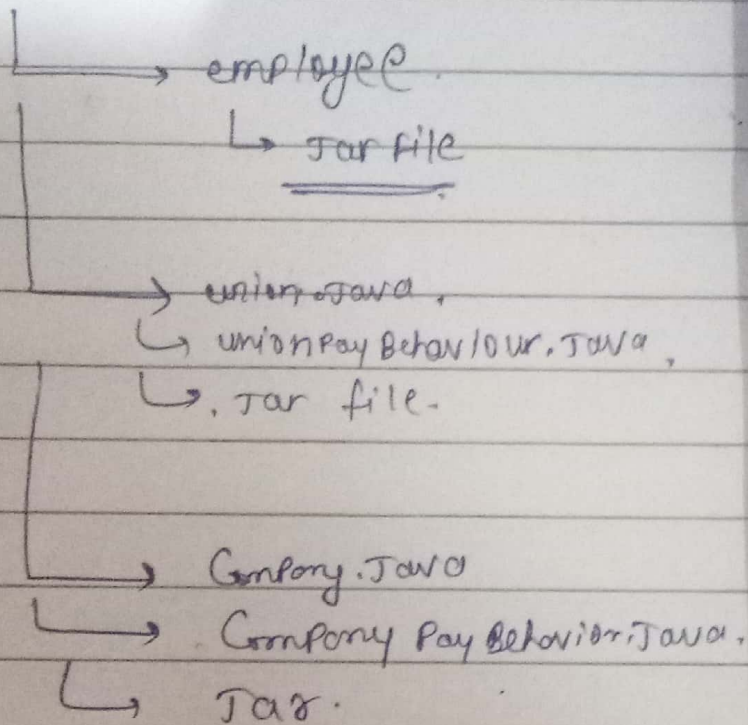 employee.
Jar file
union.Java,
unionPay Behaviour.Java,
. Jar file.
Company.Java
Company Pay Behavior.Java.
Jar.